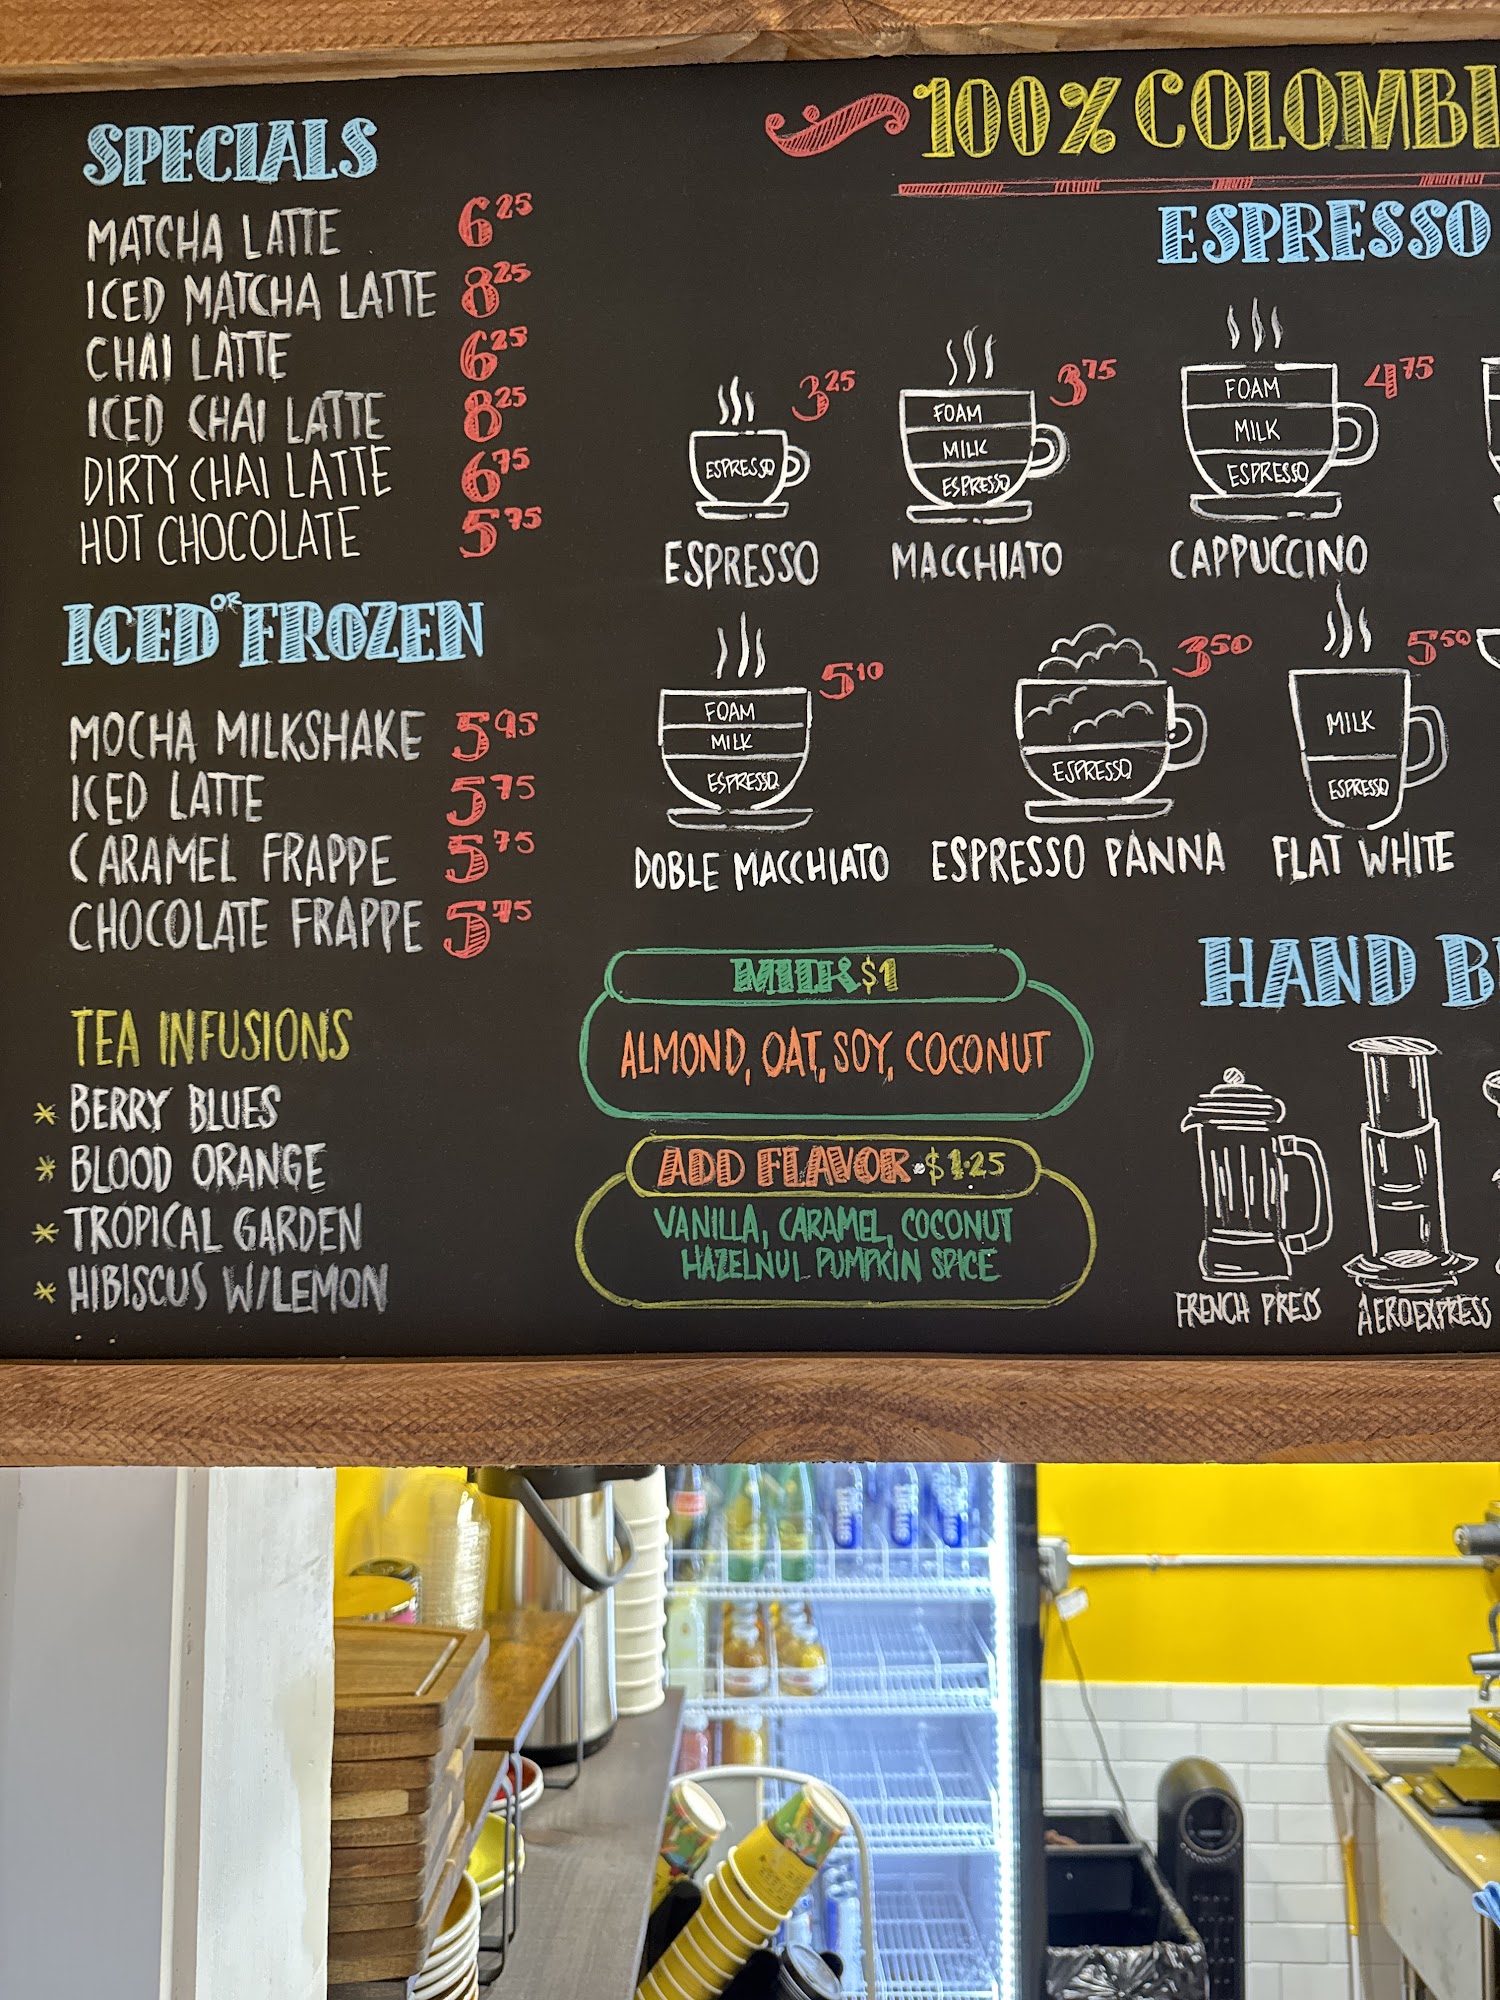 SPECIALS
MATCHA LATTE 6 25
ICED MATCHA LATTE 8 25
CHAI LATTE 6 25
ICED CHAI LATTE 8 25
DIRTY CHAI LATTE 6 75
HOT CHOCOLATE 5 75
ICED OR FROZEN
MOCHA MILKSHAKE 5 95
ICED LATTE 5 75
CARAMEL FRAPPE 5 75
CHOCOLATE FRAPPE 5 75
TEA INFUSIONS
* BERRY BLUES
* BLOOD ORANGE
* TROPICAL GARDEN
* HIBISCUS W/LEMON
100% COLOMBI
ESPRESSO
3 25
ESPRESSO
ESPRESSO
3 75
FOAM
MILK
ESPRESSO
MACCHIATO
4 75
FOAM
MILK
ESPRESSO
CAPPUCCINO
5 10
FOAM
MILK
ESPRESSO
DOBLE MACCHIATO
3 50
ESPRESSO
ESPRESSO PANNA
5 50
MILK
ESPRESSO
FLAT WHITE
MILK $1
ALMOND, OAT, SOY, COCONUT
ADD FLAVOR • $1.25
VANILLA, CARAMEL, COCONUT
HAZELNUT PUMPKIN SPICE
HAND B
FRENCH PRESS
AEROEXPRESS